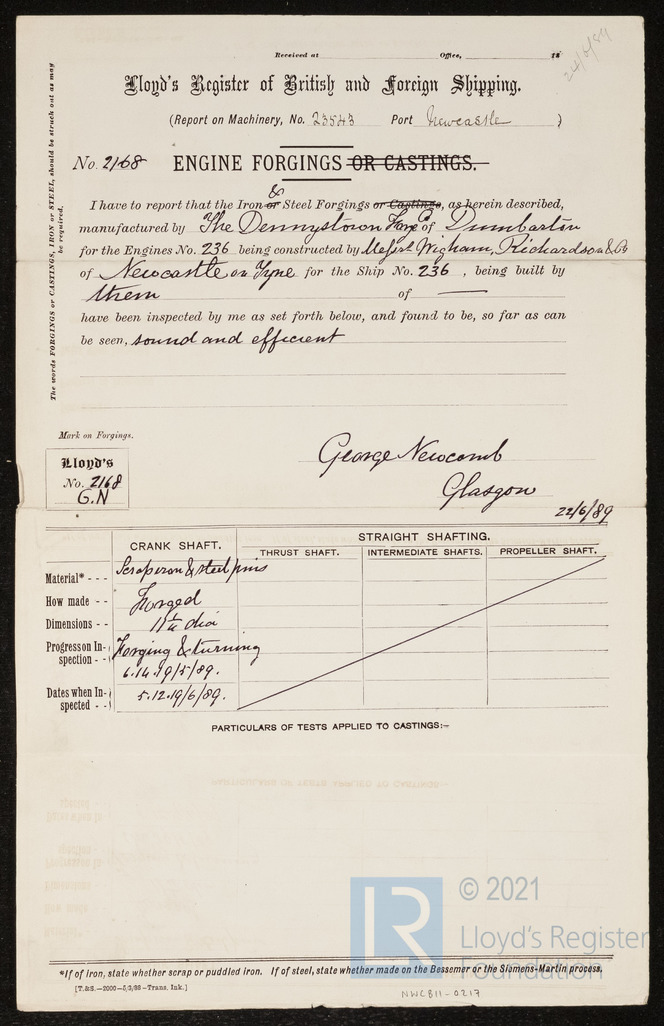 24/6/89
Received at Office, 18
Lloyd's Register of British and Foreign Shipping.
(Report on Machinery, No. 23543 Port Newcastle )
No. 2168 ENGINE FORGINGS OR CASTINGS.
I have to report that the Iron or & Steel Forgings or Castings, as herein described,
manufactured by The Dennystown Forge Co of Dumbarton
for the Engines No. 236 being constructed by Messrs Wigham, Richardson & Co
of Newcastle on Tyne for the Ship No. 236 , being built by
them of —
have been inspected by me as set forth below, and found to be, so far as can
be seen, sound and efficient
The words FORGINGS or CASTINGS, IRON or STEEL, should be struck out as may
be required.
Mark on Forgings.
Lloyd's
No. 2168
G.N
George Newcomb
Glasgow
22/6/89
CRANK SHAFT. STRAIGHT SHAFTING.
THRUST SHAFT. INTERMEDIATE SHAFTS. PROPELLER SHAFT.
Material* - - - Scrap iron & steel pins
How made - - Forged
Dimensions - - 11 1/4 dia
Progress on In-
spection - - Forging & turning
6.14.19/5/89.
Dates when In-
spected - - 5.12.19/6/89.
PARTICULARS OF TESTS APPLIED TO CASTINGS:—
© 2021
LR
Lloyd's Register
Foundation
*If of iron, state whether scrap or puddled iron. If of steel, state whether made on the Bessemer or the Siemens-Martin process.
[T.&S.—2000—5/3/88—Trans. Ink.]
NWC811-0217